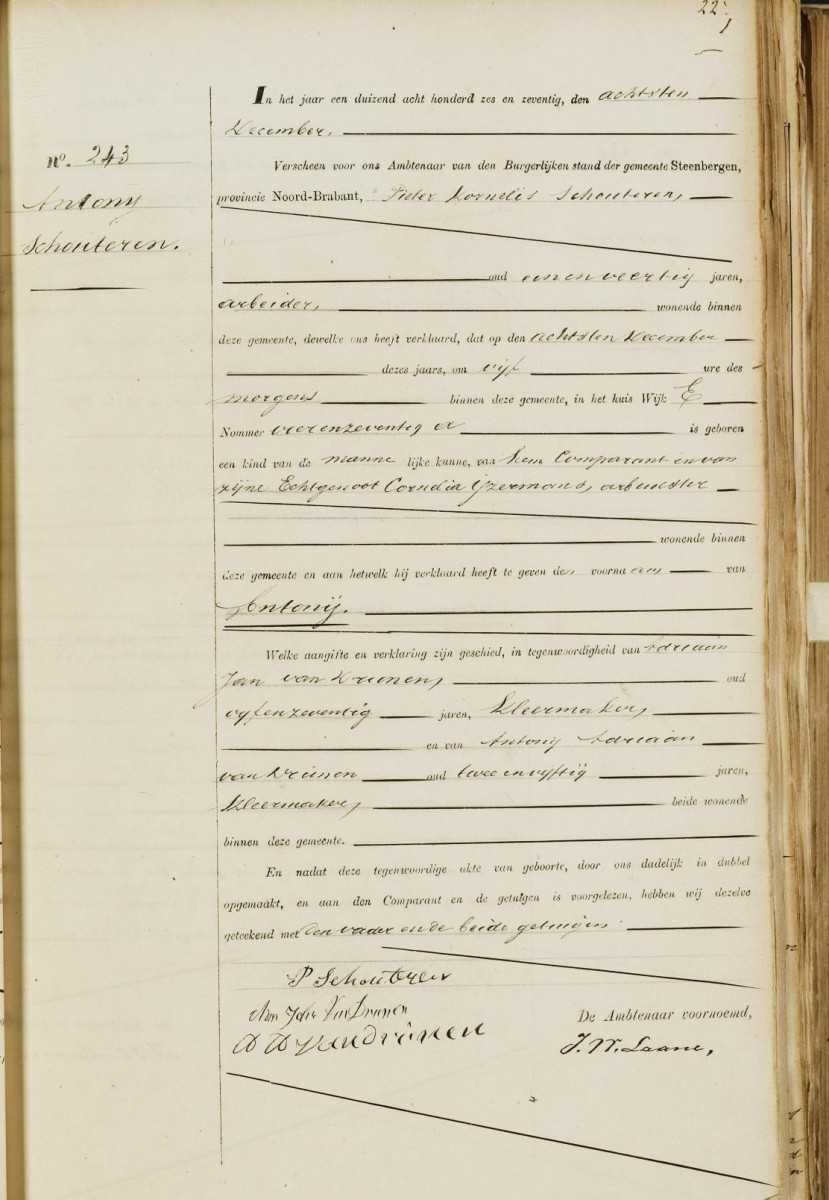 22
1
In het jaar een duizend acht honderd zes en zeventig, den achtsten
December,
no. 243
Antony
Schouteren.
Verscheen voor ons Ambtenaar van den Burgerlijken stand der gemeente Steenbergen,
provincie Noord-Brabant, Pieter Kornelis Schouteren,
oud een en veertig jaren,
arbeider, wonende binnen
deze gemeente, dewelke ons heeft verklaard, dat op den achtsten December
dezes jaars, om vijf ure des
morgens binnen deze gemeente, in het huis Wijk E
Nommer vierenzeventig a is geboren
een kind van de mannelijke kunne, van hem Comparant en van
zijne Echtgenoot Cornelia Yzermans, arbeidster
wonende binnen
deze gemeente en aan hetwelk hij verklaard heeft te geven den voornaam van
Antonij.
Welke aangifte en verklaring zijn geschied, in tegenwoordigheid van Adriaan
Jan van Drunen, oud
vyfenzeventig jaren, Kleermaker,
en van Antony Adriaan
van Drunen oud twee en vyftig jaren,
Kleermaker, beide wonende
binnen deze gemeente.
En nadat deze tegenwoordige akte van geboorte, door ons dadelijk in dubbel
opgemaakt, en aan den Comparant en de getuigen is voorgelezen, hebben wij dezelve
geteekend met den vader en de beide getuigen.
P Schouteren
Van Drunen
A A van Drunen
De Ambtenaar voornoemd,
J. W. Laane,